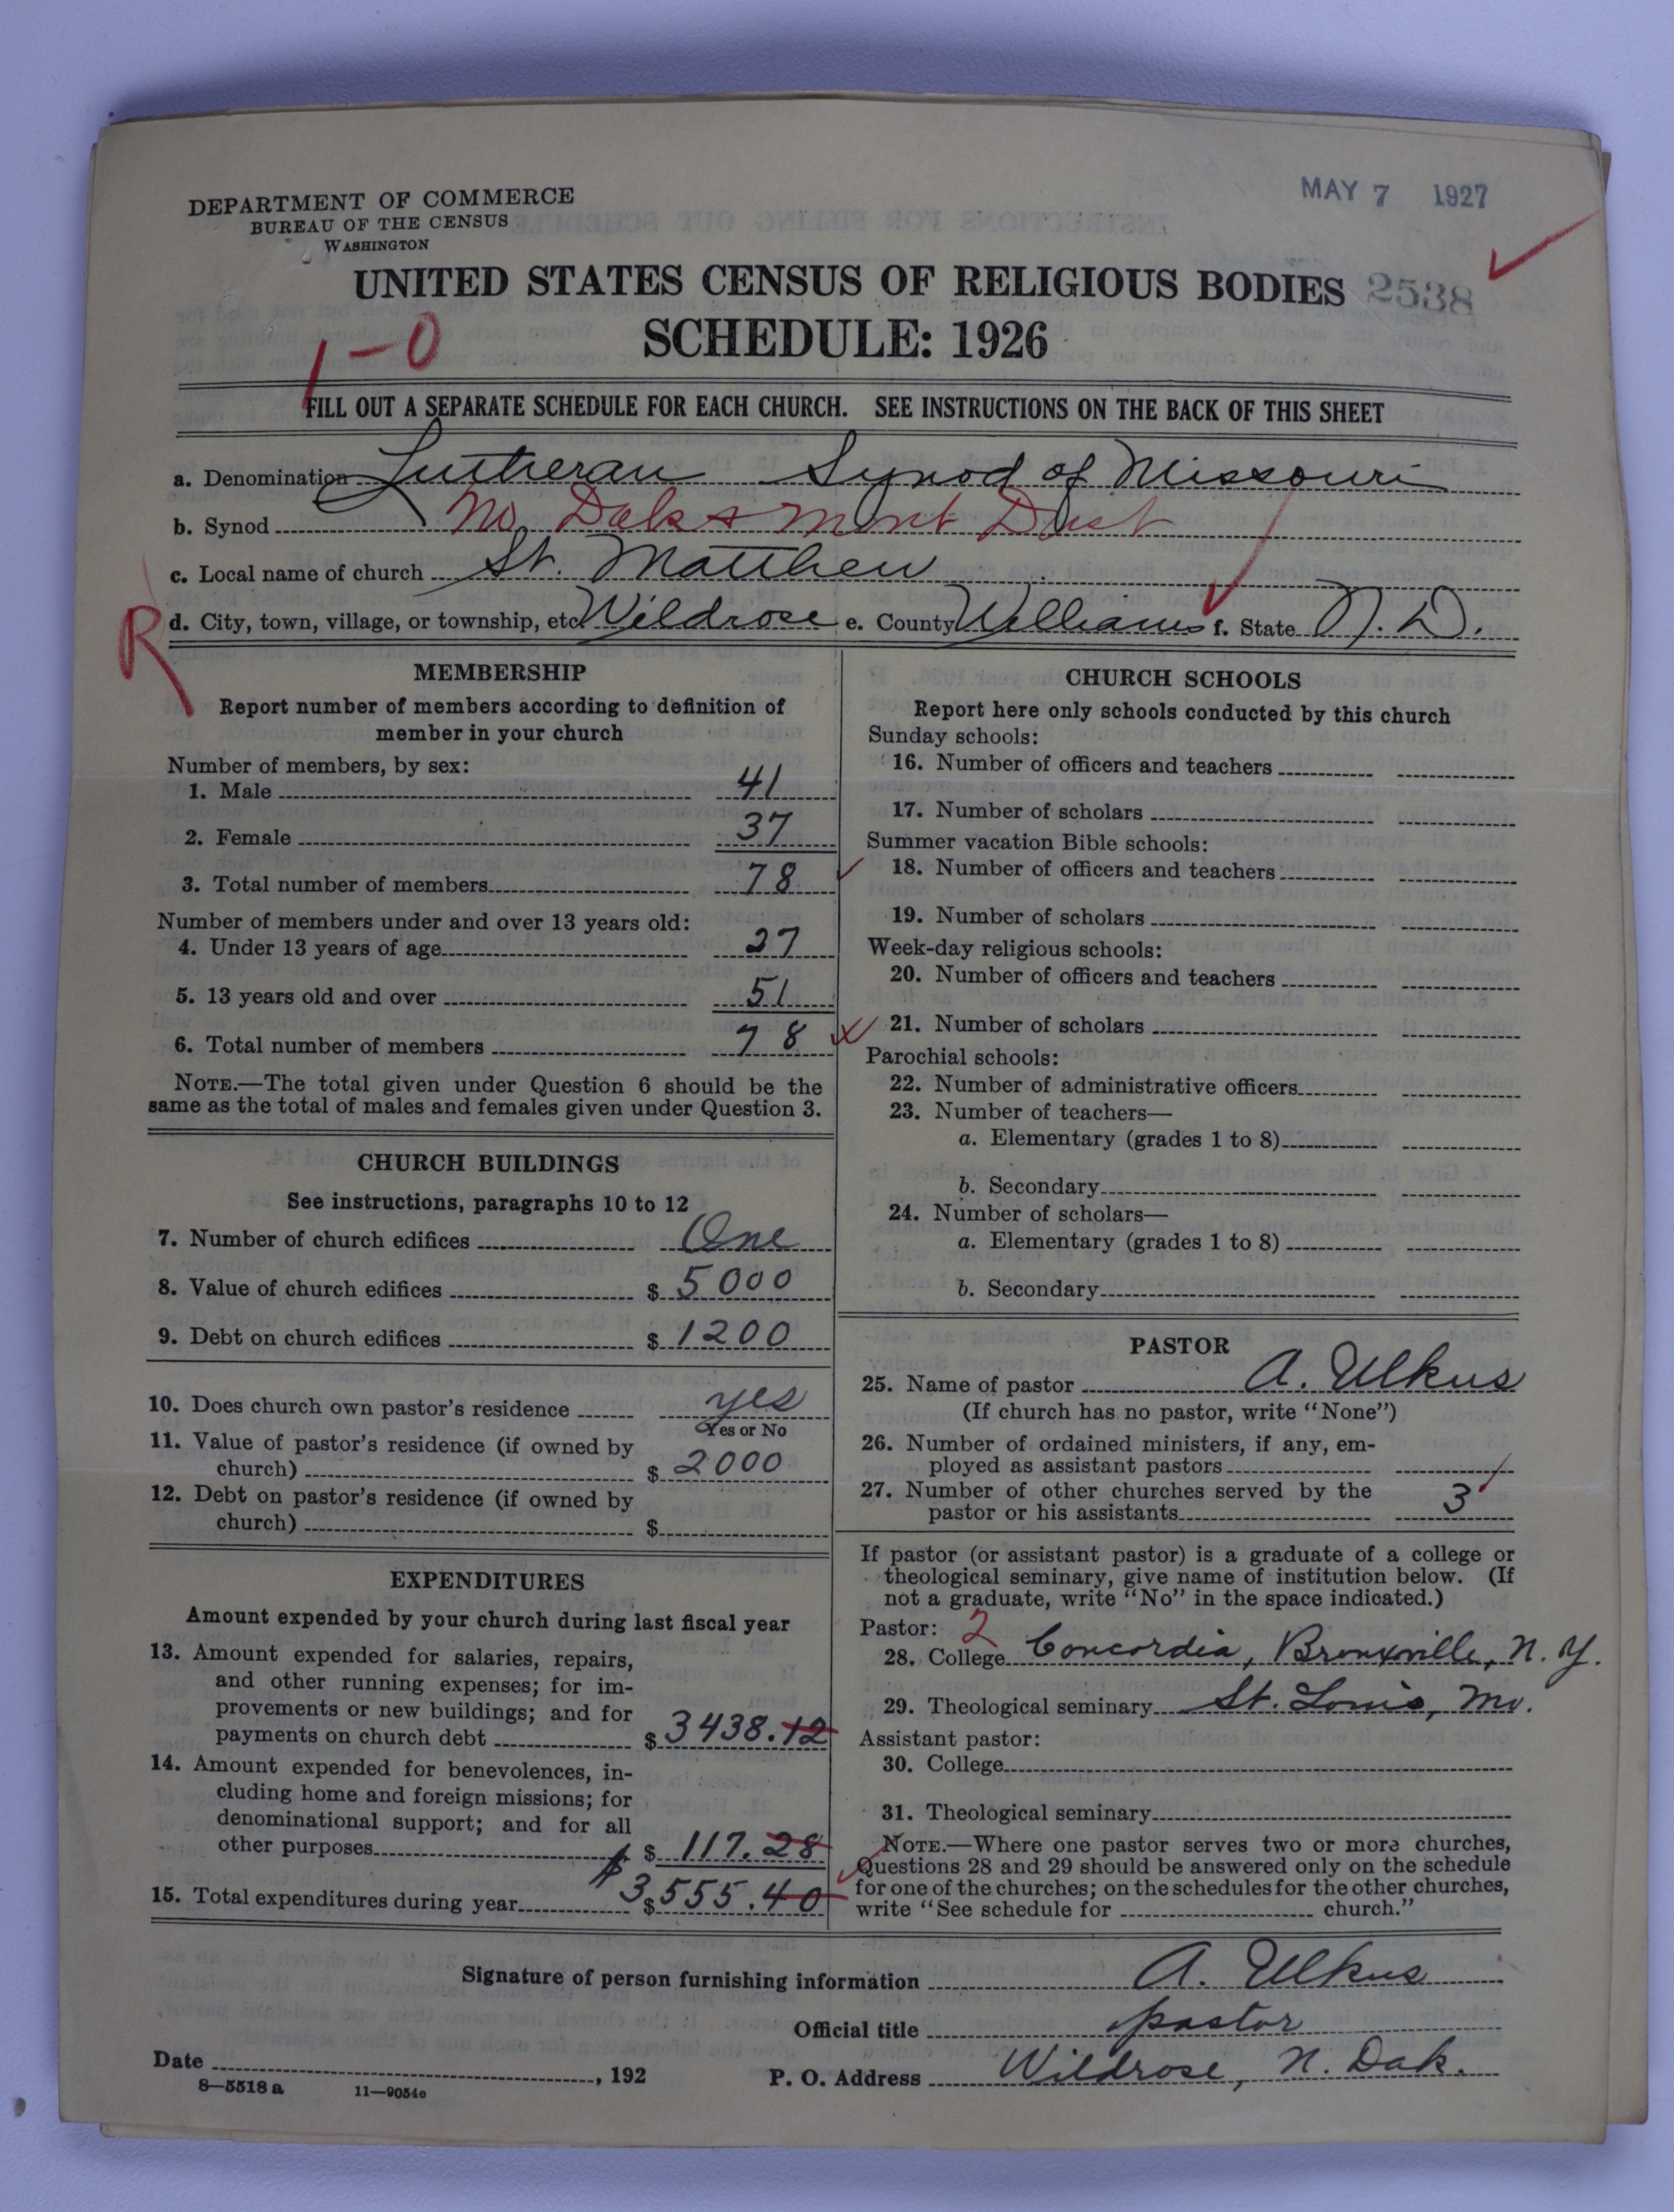 DEPARTMENT OF COMMERCE
BUREAU OF THE CENSUS
WASHINGTON
MAY 7 1927
UNITED STATES CENSUS OF RELIGIOUS BODIES 2538
SCHEDULE: 1926
1-0
FILL OUT A SEPARATE SCHEDULE FOR EACH CHURCH. SEE INSTRUCTIONS ON THE BACK OF THIS SHEET
a. Denomination Lutheran Synod of Missouri
b. Synod No. Dak & Mont Dist
c. Local name of church St. Matthew
R
d. City, town, village, or township, etc. Wildrose e. County Williams f. State N. D.
MEMBERSHIP
Report number of members according to definition of
member in your church
Number of members, by sex:
1. Male 41
2. Female 37
3. Total number of members 78
Number of members under and over 13 years old:
4. Under 13 years of age 27
5. 13 years old and over 51
6. Total number of members 78
NOTE.—The total given under Question 6 should be the
same as the total of males and females given under Question 3.
CHURCH BUILDINGS
See instructions, paragraphs 10 to 12
7. Number of church edifices One
8. Value of church edifices $ 5000
9. Debt on church edifices $ 1200
10. Does church own pastor's residence yes
Yes or No
11. Value of pastor's residence (if owned by
church) $ 2000
12. Debt on pastor's residence (if owned by
church) $
EXPENDITURES
Amount expended by your church during last fiscal year
13. Amount expended for salaries, repairs,
and other running expenses; for im-
provements or new buildings; and for
payments on church debt $ 3438.12
14. Amount expended for benevolences, in-
cluding home and foreign missions; for
denominational support; and for all
other purposes $ 117.28
15. Total expenditures during year $ $3555.40
CHURCH SCHOOLS
Report here only schools conducted by this church
Sunday schools:
16. Number of officers and teachers
17. Number of scholars
Summer vacation Bible schools:
18. Number of officers and teachers
19. Number of scholars
Week-day religious schools:
20. Number of officers and teachers
21. Number of scholars
Parochial schools:
22. Number of administrative officers
23. Number of teachers—
a. Elementary (grades 1 to 8)
b. Secondary
24. Number of scholars—
a. Elementary (grades 1 to 8)
b. Secondary
PASTOR
25. Name of pastor A. Ulkus
(If church has no pastor, write "None")
26. Number of ordained ministers, if any, em-
ployed as assistant pastors
27. Number of other churches served by the
pastor or his assistants 3
If pastor (or assistant pastor) is a graduate of a college or
theological seminary, give name of institution below. (If
not a graduate, write "No" in the space indicated.)
Pastor: 2
28. College Concordia, Bronxville, N. Y.
29. Theological seminary St. Louis, Mo.
Assistant pastor:
30. College
31. Theological seminary
NOTE.—Where one pastor serves two or more churches,
Questions 28 and 29 should be answered only on the schedule
for one of the churches; on the schedules for the other churches,
write "See schedule for church."
Signature of person furnishing information A. Ulkus
Official title pastor
Date , 192
P. O. Address Wildrose, N. Dak.
8—5518 a 11—9054c